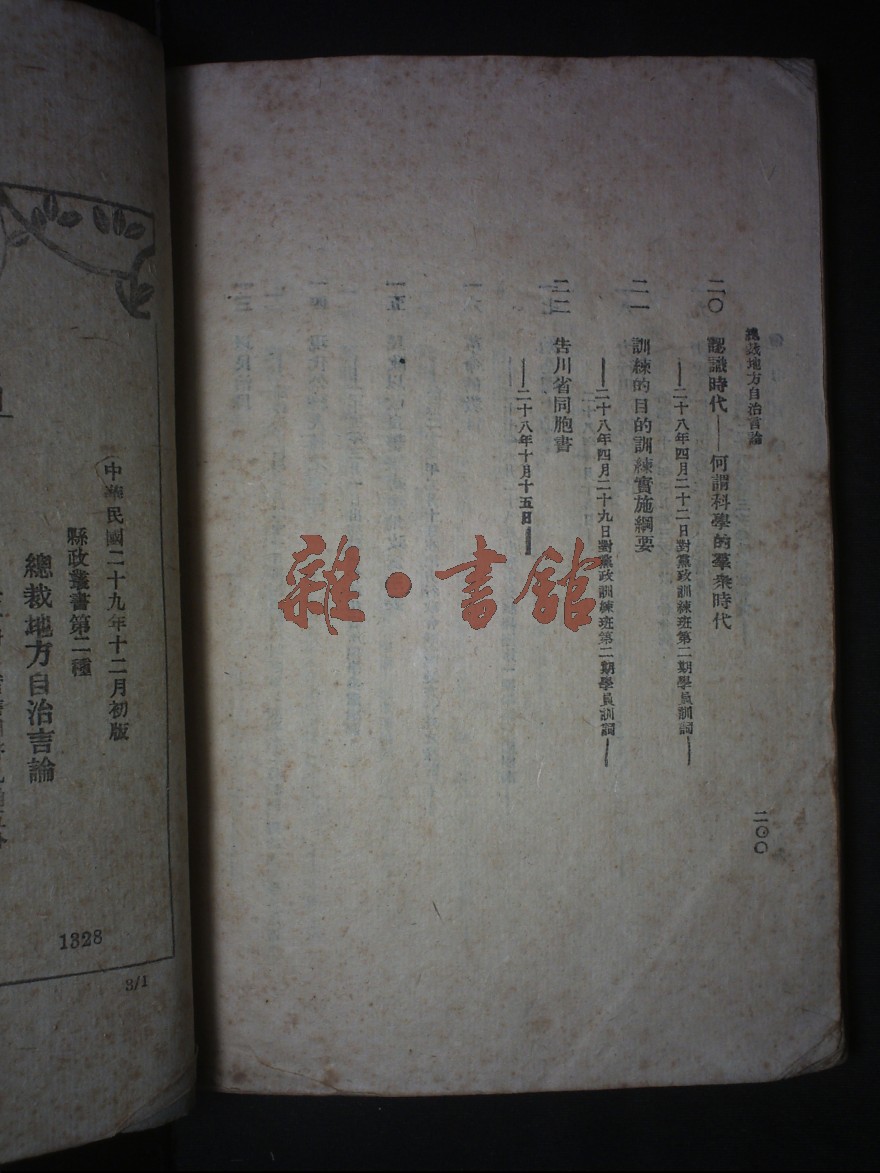 總裁地方自治言論
二〇〇
二〇 認識時代——何謂科學的羣衆時代
——二十八年四月二十二日對黨政訓練班第二期學員訓詞——
二一 訓練的目的訓練實施綱要
——二十八年四月二十九日對黨政訓練班第二期學員訓詞——
二二 告川省同胞書
——二十八年十月十五日——
雜·書館
中華民國二十九年十二月初版
縣政叢書第二種
總裁地方自治言論
1328
3/1